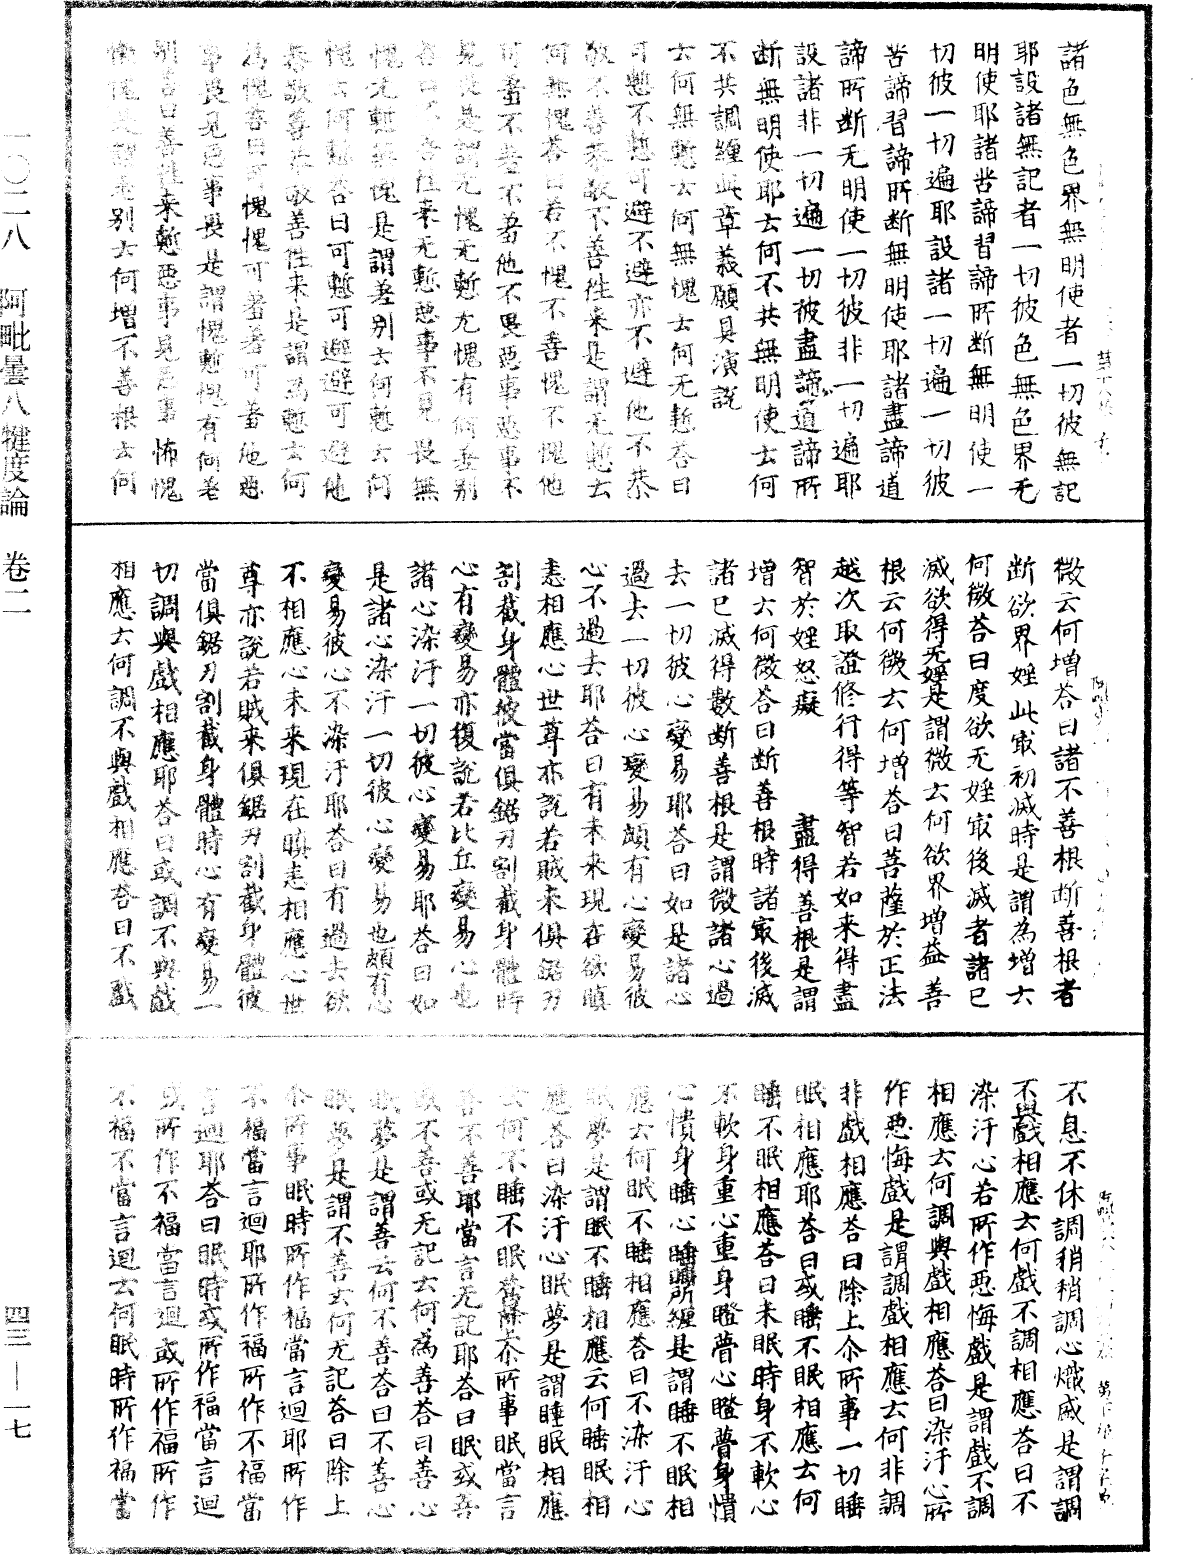 諸色無色界無明使者一切彼無記
耶設諸無記者一切彼色無色界无
明使耶諸苦諦習諦所斷無明使一
切彼一切遍耶設諸一切遍一切彼
苦諦習諦所斷無明使耶諸盡諦道
諦所斷无明使一切彼非一切遍耶
設諸非一切遍一切彼盡諦道諦所
斷無明使耶云何不共無明使云何
不共調纏此章義願具演說
云何無慙云何無愧云何无慙答曰
可慙不慙可避不避亦不避他不恭
敬不善恭敬不善性來是謂无慙云
何無愧答曰若不愧不善愧不愧他
可羞不羞不羞他不畏惡事惡事不
見畏是謂无愧无慙无愧有何差別
答曰不善性來无慙惡事不見畏無
愧无慙無愧是謂差別云何慙云何
愧云何慙答曰可慙可避避可避他
恭敬善恭敬善性來是謂爲慙云何
爲愧答曰可愧愧可羞羞可羞他惡
事畏見惡事畏是謂愧慙愧有何差
別答曰善性來慙惡事見惡事怖愧
慙愧是謂差別云何增不善根云何
微云何增答曰諸不善根斷善根者
斷欲界婬此㝡初滅時是謂為增云
何微答曰度欲无婬㝡後滅者諸已
滅欲得无婬是謂微云何欲界增益善
根云何微云何增答曰菩薩於正法
越次取證修行得等智若如來得盡
智於婬怒癡 盡得善根是謂
增云何微答曰斷善根時諸㝡後滅
諸已滅得數斷善根是謂微諸心過
去一切彼心變易耶答曰如是諸心
過去一切彼心變易頗有心變易彼
心不過去耶答曰有未來現在欲瞋
恚相應心世尊亦說若賊來俱鋸刀
割截身體彼當俱鋸刀割截身體時
心有變易亦復說若比丘變易心也
諸心染汙一切彼心變易耶答曰如
是諸心染汙一切彼心變易也頗有心
變易彼心不染汙耶答曰有過去欲
不相應心未來現在瞋恚相應心世
尊亦說若賊來俱鋸刀割截身體彼
當俱鋸刀割截身體時心有變易一
切調與戲相應耶答曰或調不與戲
相應云何調不與戲相應答曰不戲
不息不休調稍稍調心熾盛是謂調
不與戲相應云何戲不調相應答曰不
染汙心若所作惡悔戲是謂戲不調
相應云何調與戲相應答曰染汙心所
作惡悔戲是謂調戲相應云何非調
非戲相應答曰除上尒所事一切睡
眠相應耶答曰或睡不眠相應云何
睡不眠相應答曰未眠時身不軟心
不軟身重心重身瞪瞢心瞪瞢身憒
心憒身睡心睡睡所纏是謂睡不眠相
應云何眠不睡相應答曰不染汙心
眠夢是謂眠不睡相應云何睡眠相
應答曰染汙心眠夢是謂睡眠相應
云何不睡不眠答曰除上尒所事眠當言
善不善耶當言无記耶答曰眠或善
或不善或无記云何為善答曰善心
眠夢是謂善云何不善答曰不善心
眠夢是謂不善云何无記答曰除上
尒所事眠時所作福當言迴耶所作
不福當言迴耶所作福所作不福當
言迴耶答曰眠時或所作福當言迴
或所作不福當言迴或所作福所作
不福不當言迴云何眠時所作福當
一〇二八 阿毗曇八犍度論 卷二
四三—一七